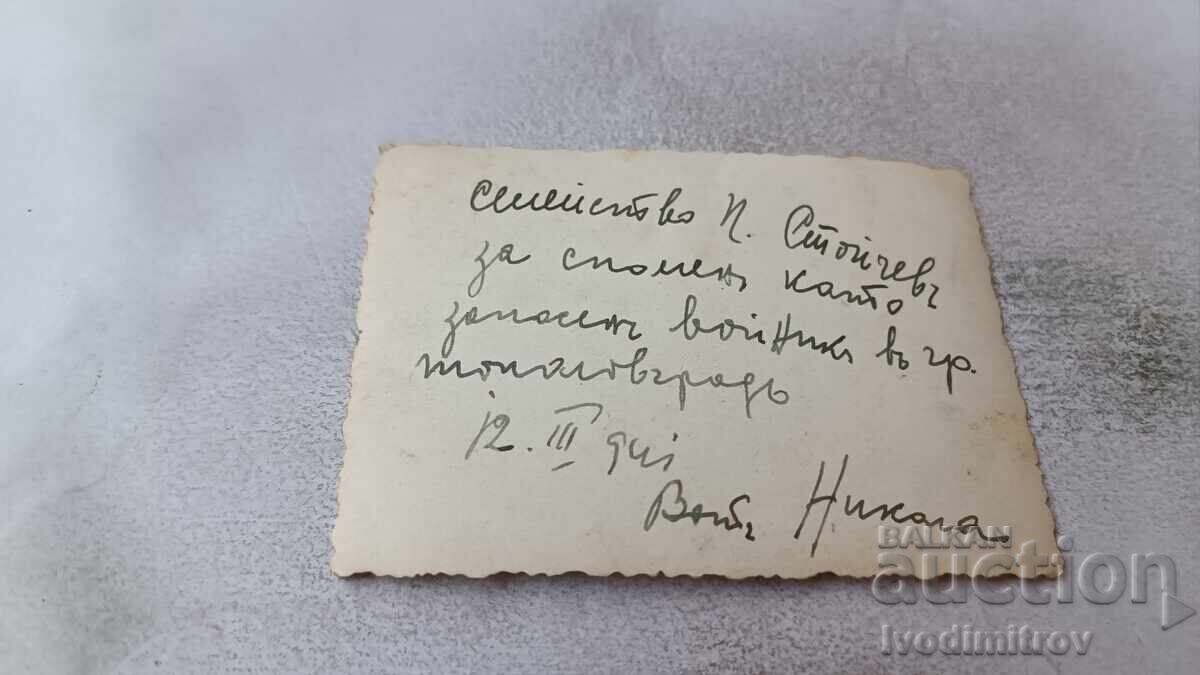 семейство П. Стойчевъ
за споменъ като
запасенъ войникъ въ гр.
тополовградъ
12. III 941
Вашъ Никола
BALKAN
auction
Ivodimitrov